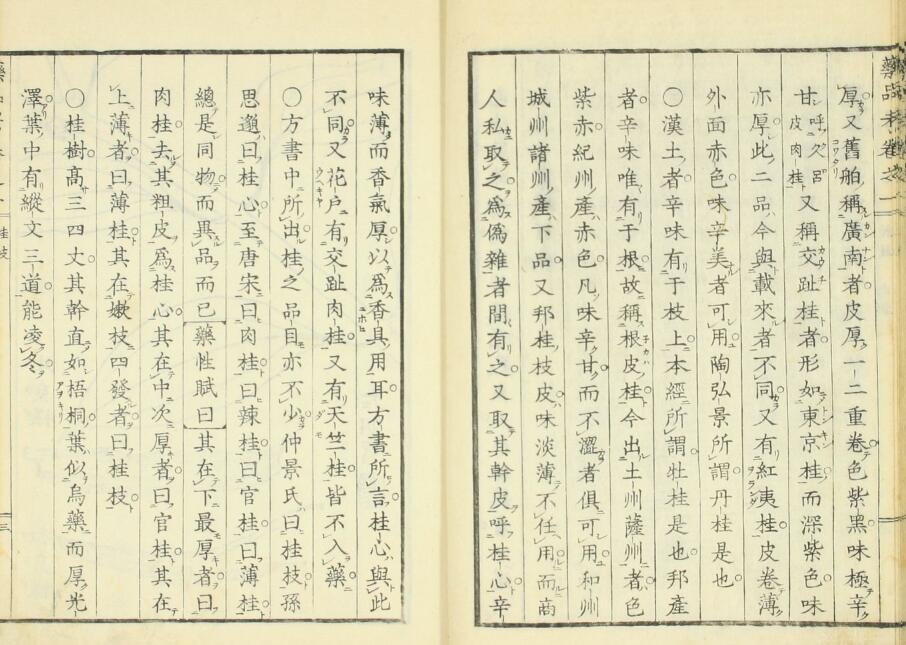 厚又舊舶稱廣南者皮厚一二重卷色紫黑味極辛
甘呼久呂皮肉桂又稱交趾桂者形如東京桂而深紫色味
亦厚此二品今與載來者不同又有紅夷桂皮卷薄
外面赤色味辛美者可用陶弘景所謂丹桂是也
○漢土者辛味有于枝上本經所謂牡桂是也邦產
者辛味唯有于根故稱根皮桂今出土州薩州者色
紫赤紀州產赤色凡味辛甘而不澀者俱可用和州
城州諸州產下品又邦桂枝皮味淡薄不任用而商
人私取之爲僞雜者間有之又取其幹皮呼桂心辛
味薄而香氣厚以爲香具用耳方書所言桂心與此
不同又花戶有交趾肉桂又有天竺桂皆不入藥
○方書中所出桂之品目亦不少仲景氏曰桂枝孫
思邈曰桂心至唐宋曰肉桂曰辣桂曰官桂曰薄桂
總是同物而異品而已藥性賦曰其在下最厚者曰
肉桂去其粗皮爲桂心其在中次厚者曰官桂其在
上薄者曰薄桂其在嫩枝四發者曰桂枝
○桂樹高三四丈其幹直如梧桐葉似烏藥而厚光
澤葉中有縱文三道能凌冬
桂枝
三